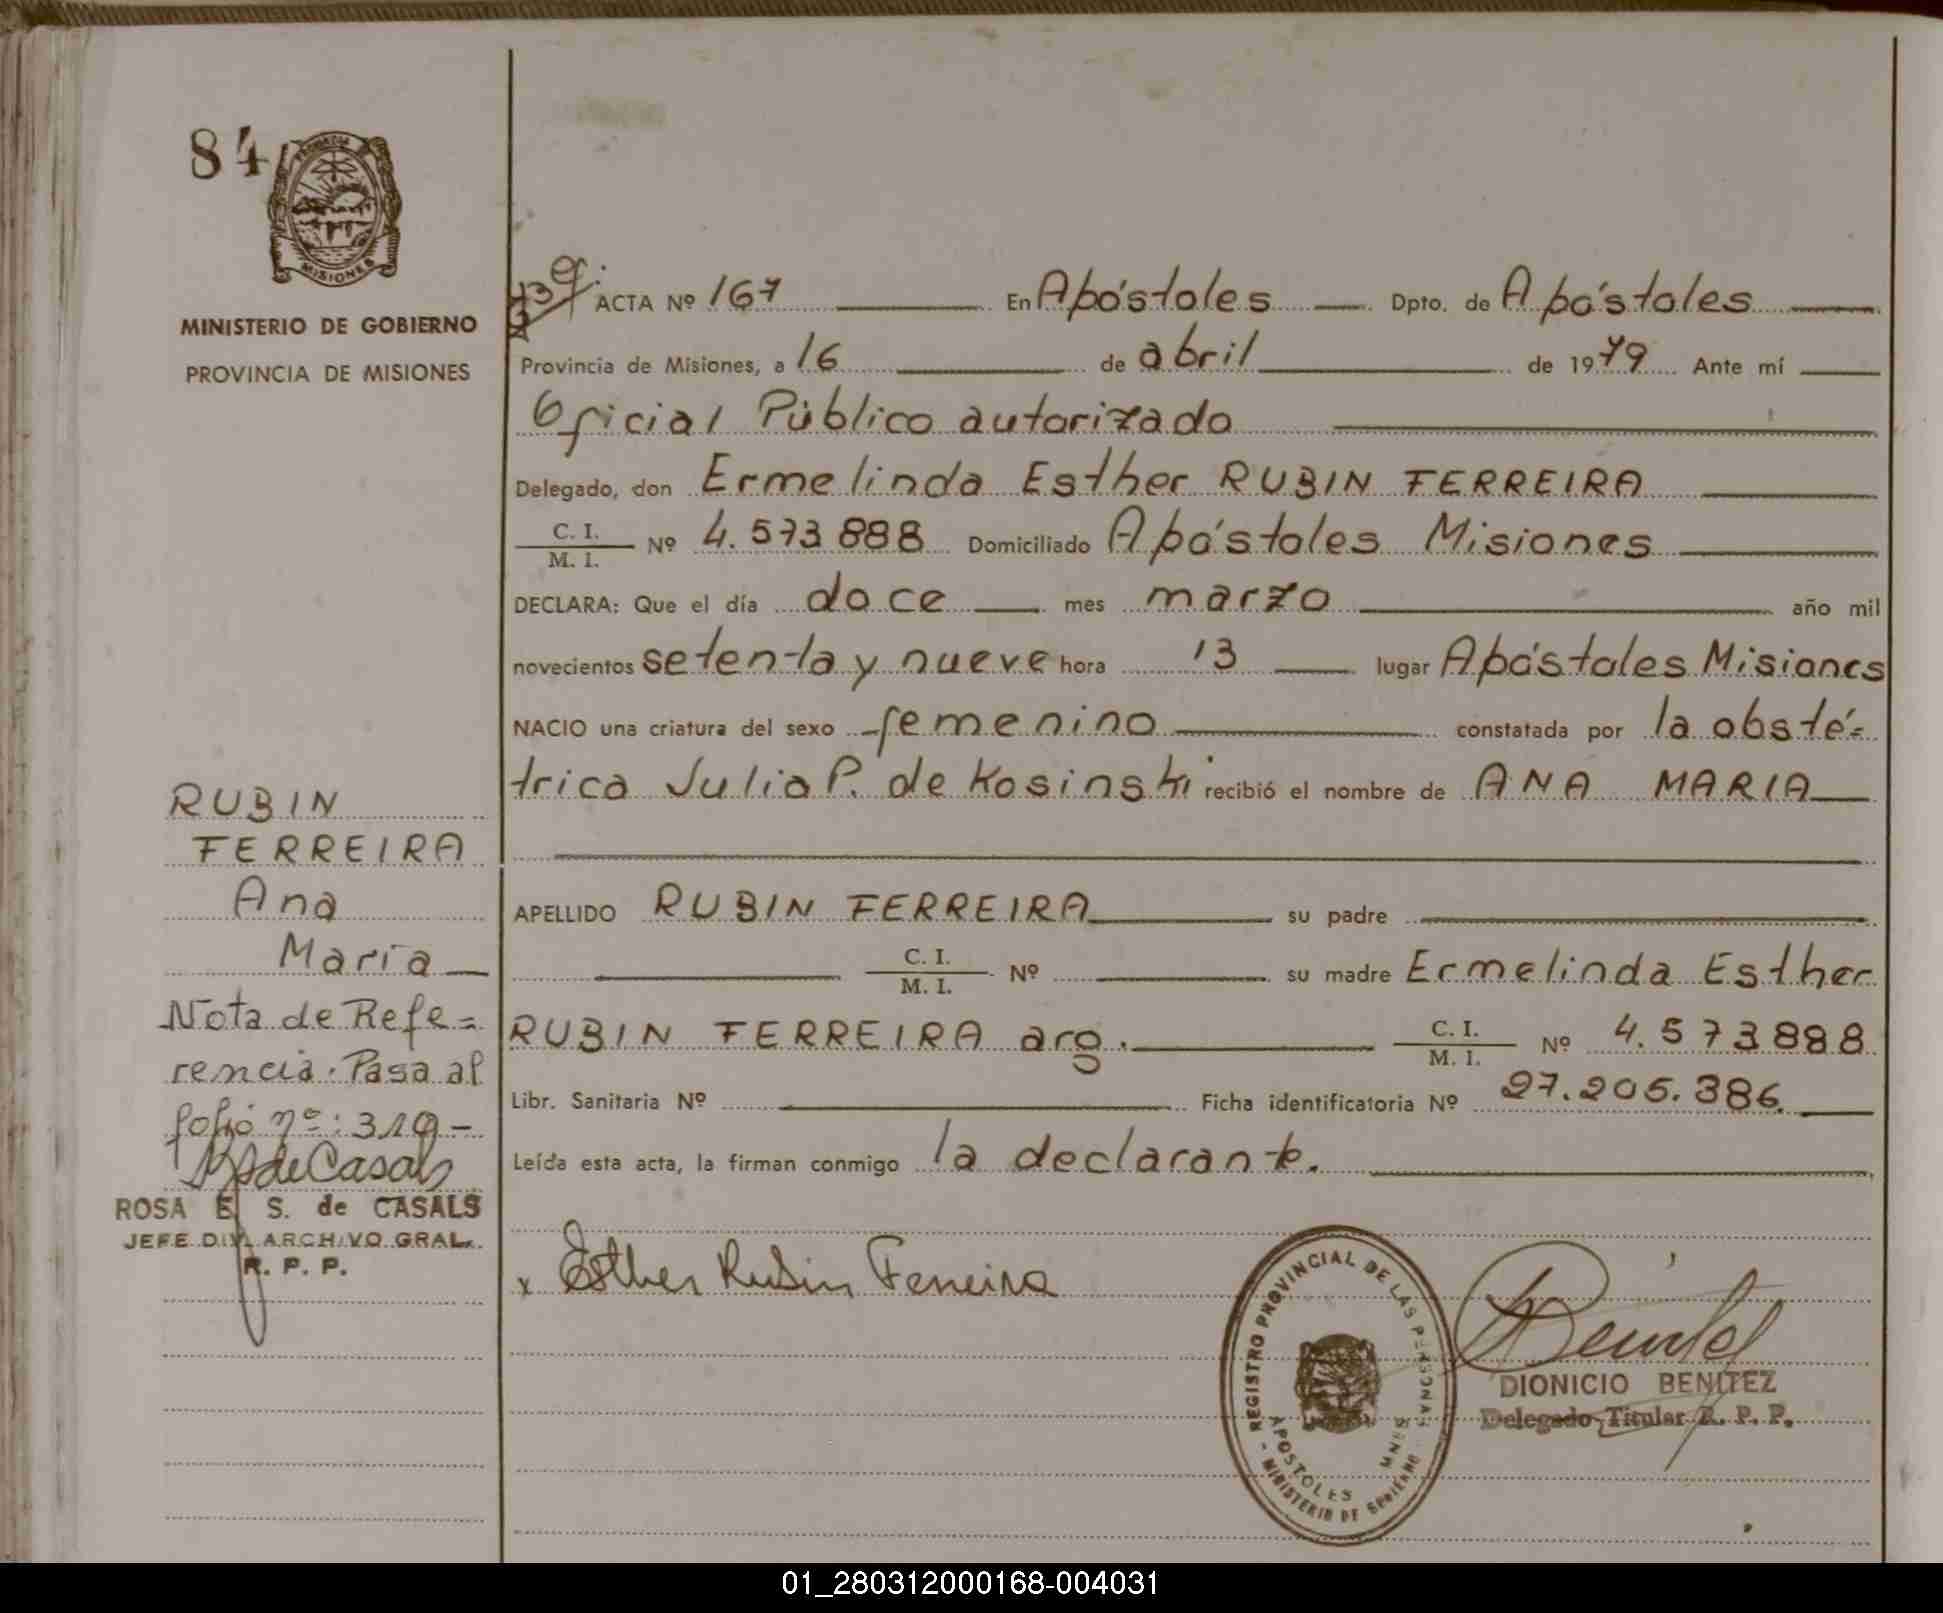 84
PROVINCIA DE
MISIONES
MINISTERIO DE GOBIERNO
PROVINCIA DE MISIONES
ACTA Nº 167 En Apóstoles Dpto. de Apóstoles
Provincia de Misiones, a 16 de abril de 1979 Ante mí
Oficial Público autorizado
Delegado, don Ermelinda Esther RUBIN FERREIRA
C. I.
M. I. Nº 4.573888 Domiciliado Apóstoles Misiones
DECLARA: Que el día doce mes marzo año mil
novecientos setenta y nueve hora 13 lugar Apóstoles Misiones
NACIO una criatura del sexo femenino constatada por la obsté=
trica Julia P. de Kosinski recibió el nombre de ANA MARIA
APELLIDO RUBIN FERREIRA su padre
C. I.
M. I. Nº su madre Ermelinda Esther
RUBIN FERREIRA arg. C. I.
M. I. Nº 4.573888
Libr. Sanitaria Nº Ficha identificatoria Nº 27.205.386
Leída esta acta, la firman conmigo la declarante.
x Esther Rubin Ferreira
RUBIN
FERREIRA
Ana
María
Nota de Refe=
rencia. Pasa al
folio nº: 319-
RSdeCasals
ROSA E. S. de CASALS
JEFE DIV. ARCHIVO GRAL.
R. P. P.
REGISTRO PROVINCIAL DE LAS PERSONAS
APOSTOLES MNES
- MINISTERIO DE GOBIERNO -
DIONICIO BENITEZ
Delegado Titular R. P. P.
01_280312000168-004031